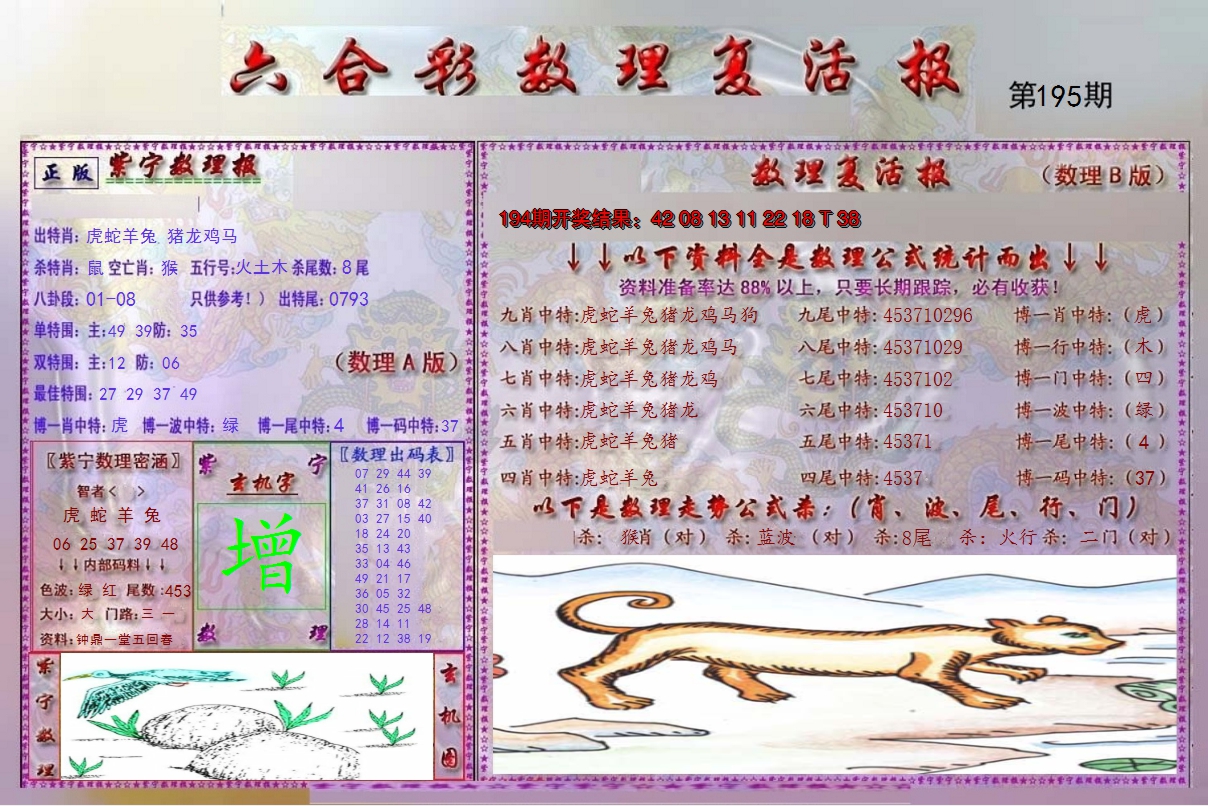 六合彩数理复活报
第195期
正版 紫宁数理报
出特肖: 虎蛇羊兔 猪龙鸡马
杀特肖: 鼠 空亡肖: 猴 五行号:火土木 杀尾数: 8 尾
八卦段: 01-08 只供参考!） 出特尾: 0793
单特围: 主:49 39防: 35
双特围: 主:12 防: 06
（数理 A 版）
最佳特围: 27 29 37 49
博一肖中特: 虎 博一波中特: 绿 博一尾中特: 4 博一码中特:37
〖紫宁数理密涵〗
智者< >
虎 蛇 羊 兔
06 25 37 39 48
↓↓内部码料↓↓
色波: 绿 红 尾数 :453
大小: 大 门路:三 一
资料:钟鼎一堂五回春
紫 宁
玄机字
增
数 理
〖数理出码表〗
07 29 44 39
41 26 16
37 31 08 42
03 27 15 40
18 24 20
35 13 43
33 04 46
49 21 17
36 05 32
30 45 25 48
28 14 11
22 12 38 19
紫宁数理
玄机图
数理复活报
（数理 B 版）
194期开奖结果：42 08 13 11 22 18 T 38
↓↓以下资料全是数理公式统计而出↓↓
资料准备率达 88% 以上，只要长期跟踪，必有收获！
九肖中特:虎蛇羊兔猪龙鸡马狗 九尾中特: 453710296 博一肖中特:（虎）
八肖中特:虎蛇羊兔猪龙鸡马 八尾中特: 45371029 博一行中特:（木）
七肖中特:虎蛇羊兔猪龙鸡 七尾中特: 4537102 博一门中特:（四）
六肖中特:虎蛇羊兔猪龙 六尾中特: 453710 博一波中特:（绿）
五肖中特:虎蛇羊兔猪 五尾中特: 45371 博一尾中特:（ 4 ）
四肖中特:虎蛇羊兔 四尾中特: 4537 博一码中特:（37）
以下是数理走势公式杀：（肖、波、尾、行、门）
杀: 猴肖（对） 杀: 蓝波 （对） 杀:8尾 杀: 火行 杀: 二门（对）